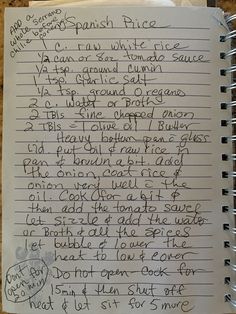 Spanish Rice
ADD a
whole Serrano
chilie before
1 c. raw white rice
1/2 can or 8oz tomato sauce
1/2 tsp. ground cumin
1 tsp. Garlic Salt
1/2 tsp. ground Oregano
2 c. water or Broth
2 TBls fine chopped onion
2 TBls = 1 olive oil 1 Butter
heavy bottom pan & glass
lid. Put oil & raw rice in
pan & brown a bit. Add
the onion, coat rice &
onion very well = the
oil. Cook for a bit &
then add the tomato sauce
let sizzle & add the water
or Broth & all the spices
let bubble & lower the
heat to low & cover
Do not open - Cook for
15 min & then shut off
heat & let sit for 5 more
Don't
open for
20 min